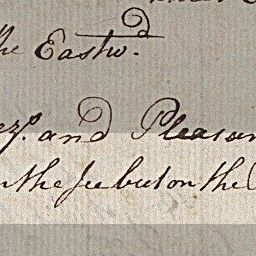 the Eastwd.
and Pleasan
in the see but on the